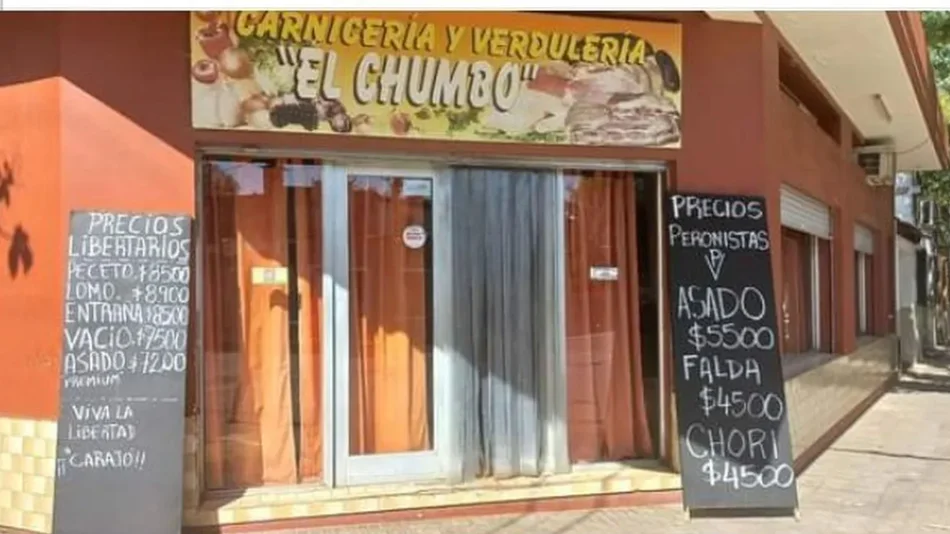 CARNICERÍA Y VERDULERÍA
"EL CHUMBO"
PRECIOS
LIBERTARIOS
PECETO.$8500
LOMO. $8.900
ENTRAÑA $8500
VACIO.$7500
ASADO $7200
PREMIUM
VIVA LA
LIBERTAD
¡¡CARAJO!!
PRECIOS
PERONISTAS
P
V
ASADO
$5500
FALDA
$4500
CHORI
$4500